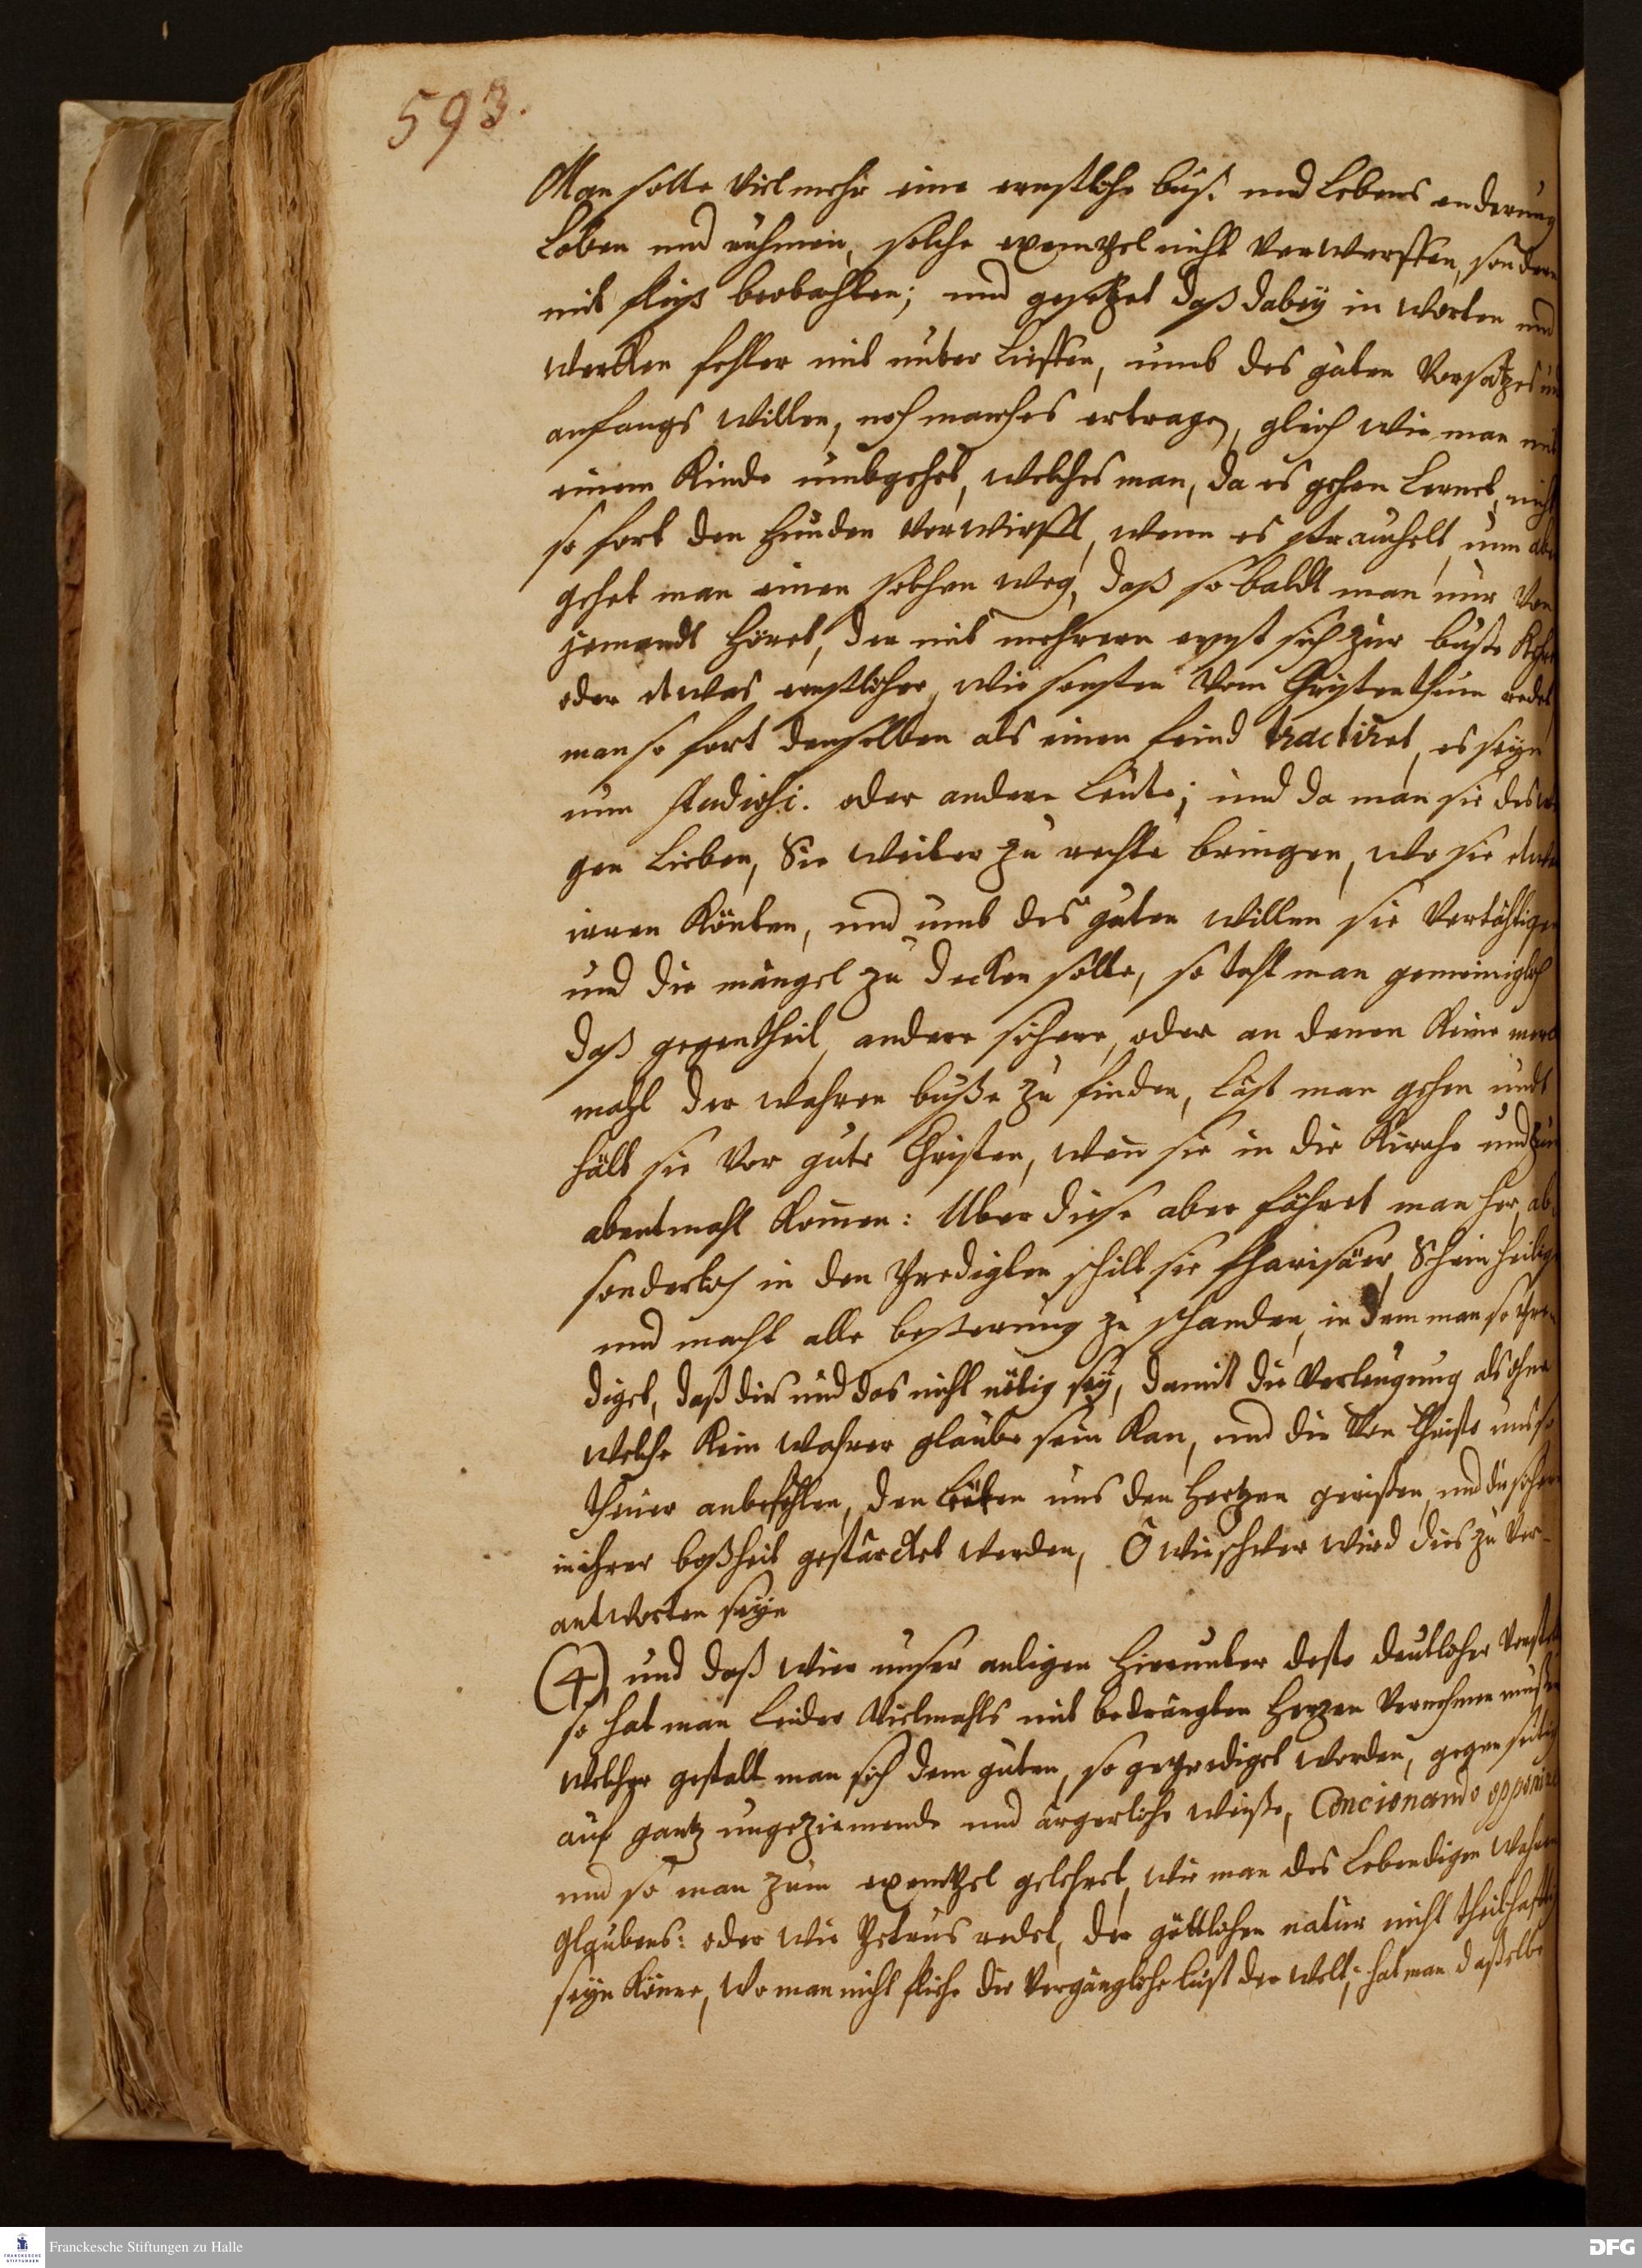 593.
Man solte Vielmehr eine ernstliche bus. und Lebens enderung
Loben und rühmen, solche exempel nicht Verwerffen, sondern
mit fleiß beobachten; und gesetzet daß dabey in Worten und
Wercken fehler mit unter Lieffen, umb des guten Vorsatzes und
anfangs Willen, noch manches ertragen, gleich wie man mit
einem Kinde umbgehet, Welches man, da es gehen Lernet, nicht
so fort den Hunden Verwirfft, wenn es strauchelt, nun aber
gehet man einen solchen Weg, daß so baldt man nur Von
jemandt höret, der mit mehrern ernst sich zur buße Kehre
oder etwas ernstlicher, wie sonsten Vom Christenthum redet
man so fort denselben als einen feind tractiret, es seyn
nun studiosi. oder andere Leute; und da man sie deswe
gen Lieben, Sie Weiter zu rechte bringen, wo sie etwa
irren Könten, und umb des guten Willen sie Vertähtigen
und die mängel zu decken solte, so thut man gemeiniglich
daß gegentheil, andere sichere, oder an denen Keine merck
mahl der Wahren buße zu finden, Läst man gehen undt
hält sie Vor gute Christen, Wen sie in die Kirche und zum
abentmahl Komen: Uber diese aber fähret man her, ab
sonderlich in den Predigten schilt sie Pharisäer, Scheinheilige
und macht alle besserung zu schanden, in dem man so Pre
diget, daß dies und das nicht nötig sey, damit die Verleugnung als ohne
Welche Kein Wahrer glaube sein Kan, und die Von Christo uns so
theuer anbefohlen, den Leüten aus den Hertzen gerißen, und die sichere
in ihrer boßheit gestärcket Werden, O wie schwer wird dies zu Ver-
antworten seyn
(4) und daß Wier unser anligen hierunter desto deutlicher Vorstell
so hat man Leider Vielmahls mit bedrängten Herzen Vernehmen müßen
Welcher gestalt man sich dem guten, so geprediget worden, gegenseitig
auf gantz ungeziemende und ärgerliche Weiße, Concionando opponiret
und so man zum exempel gelehret, Wie man des Lebendigen Wahren
glaubens: oder Wie Petrus redet, der göttlichen natur nicht theilhafftig
seyn Könne, Wo man nicht fliehe die Vergängliche Lust der Welt; hat man daßelbe
Franckesche Stiftungen zu Halle
FRANCKESCHE STIFTUNGEN
DFG